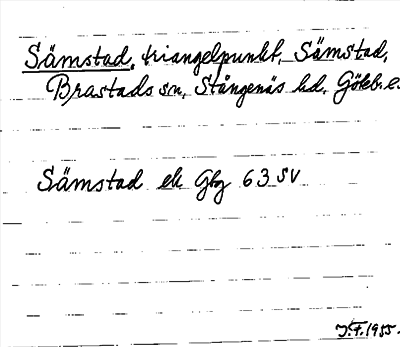 Sämstad, triangelpunkt, Sämstad,
Brastads sn, Stångenäs hd. Göteb. e.
Sämstad ek Gbg 63 SV
J.F. 1955.